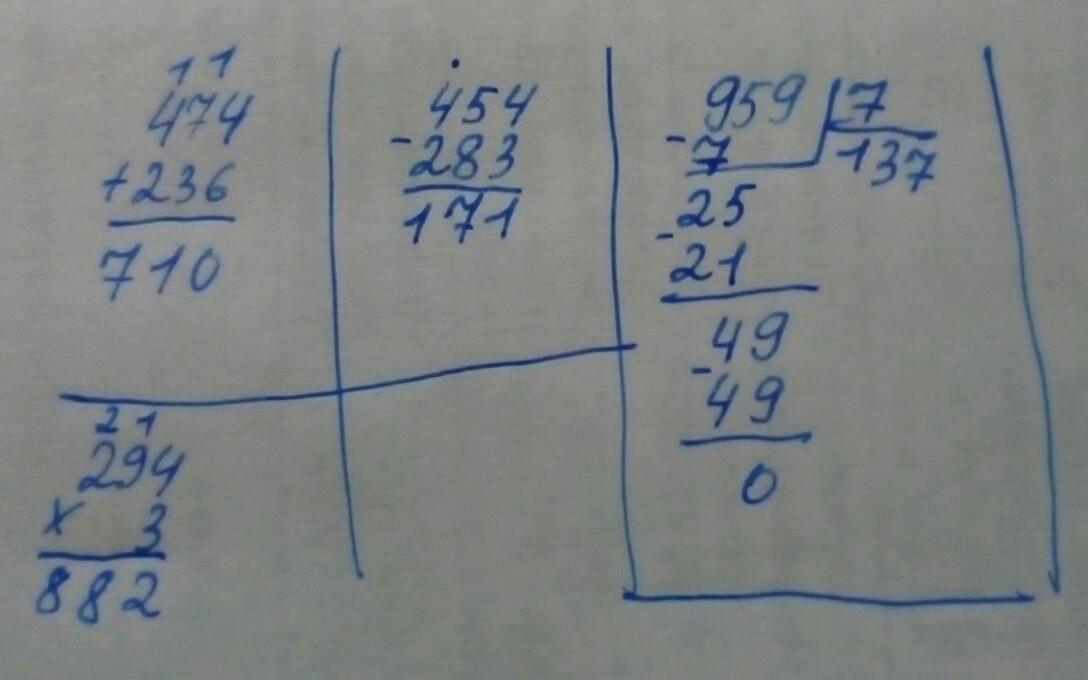 1 1
474
+236
710
.
454
-283
171
959 7
-7 137
25
-21
49
-49
0
2 1
294
x 3
882